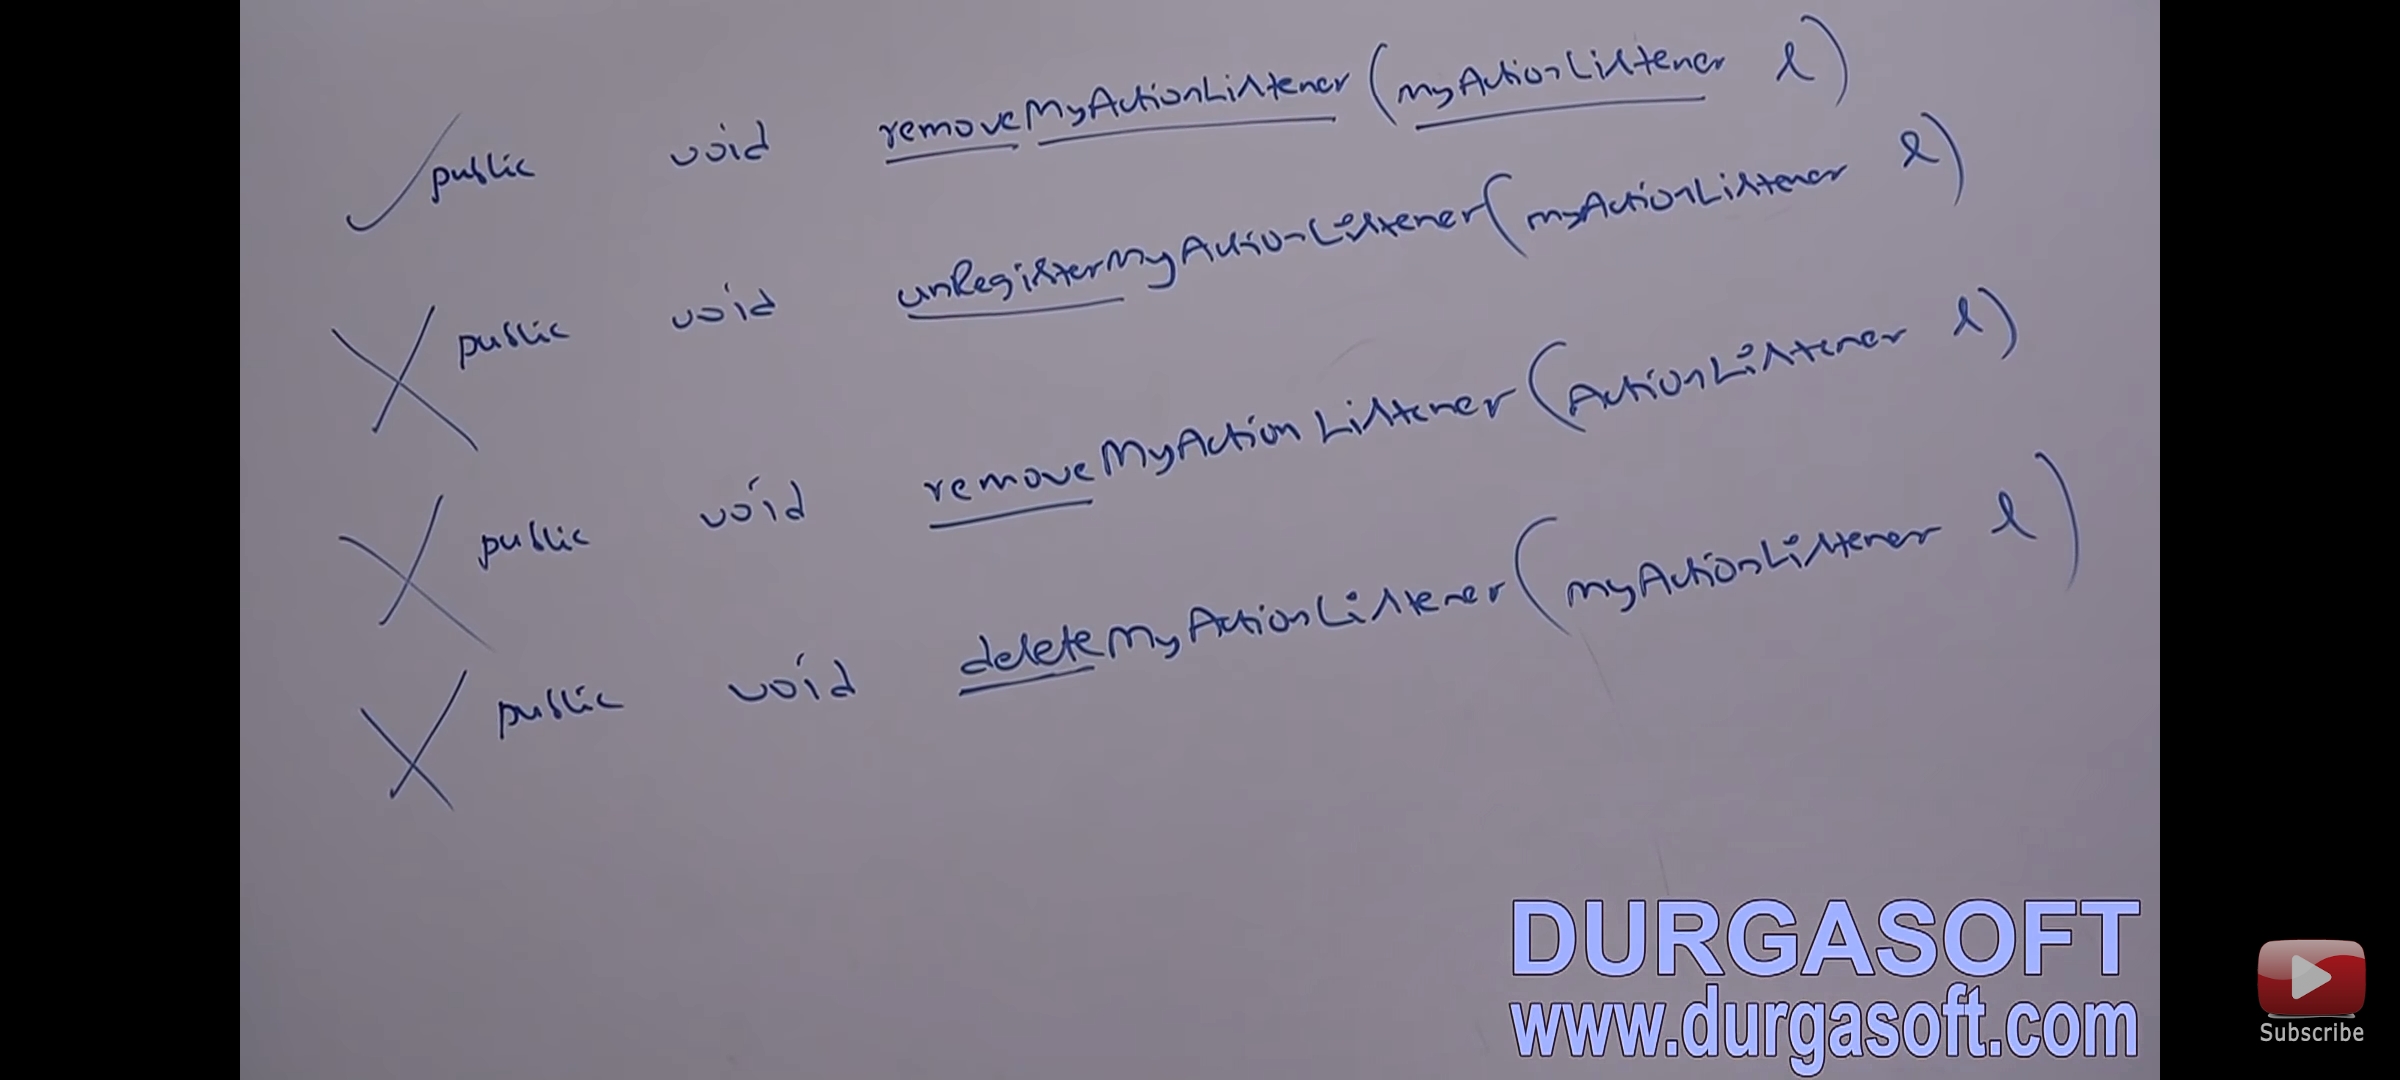 public void removeMyActionListener(myActionListener l)
public void unRegisterMyActionListener(myActionListener l)
public void removeMyActionListener(ActionListener l)
public void deleteMyActionListener(myActionListener l)
DURGASOFT
www.durgasoft.com
Subscribe